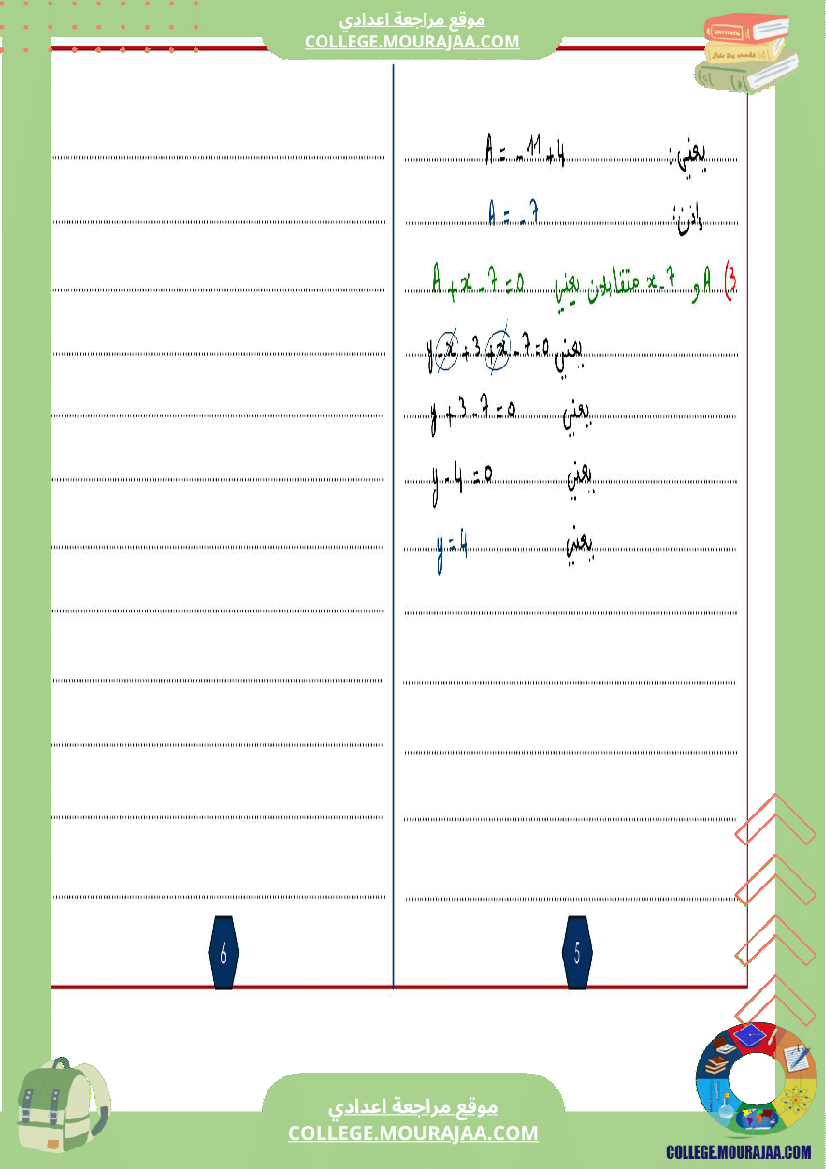 موقع مراجعة اعدادي
COLLEGE.MOURAJAA.COM
يعني : A = -11+4
إذن: A = -7
3) A و x-7 متقابلان يعني A + x - 7 = 0
يعني y - x + 3 + x - 7 = 0
يعني y + 3 - 7 = 0
يعني y - 4 = 0
يعني y = 4
5
6
موقع مراجعة اعدادي
COLLEGE.MOURAJAA.COM
COLLEGE.MOURAJAA.COM